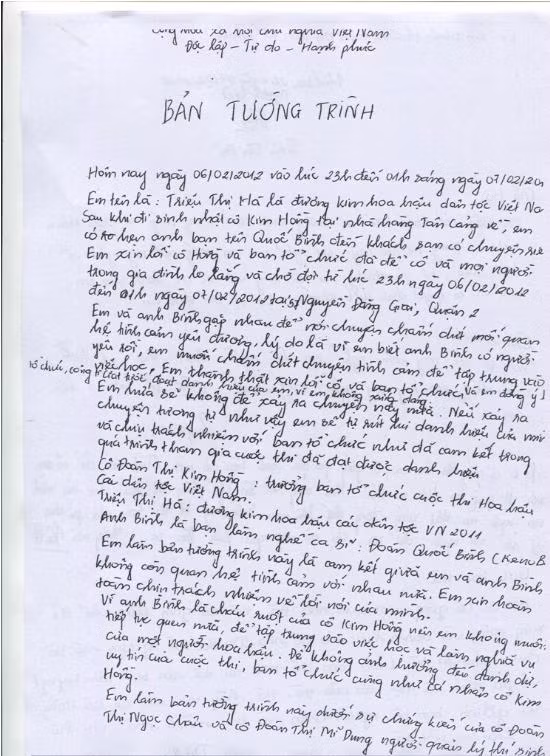 Cộng hòa xã hội chủ nghĩa Việt Nam
Độc lập - Tự do - Hạnh phúc
BẢN TƯỜNG TRÌNH
Hôm nay ngày 06/02/2012 vào lúc 23h đến 01h sáng ngày 07/02/201
Em tên là : Triệu Thị Hà là đương kim hoa hậu dân tộc Việt Na
Sau khi đi sinh nhật cô Kim Hồng tại nhà hàng Tân Cảng về, em
có hẹn anh bạn tên Quốc Bình đến khách sạn có chuyện
Em xin lỗi cô Hồng và ban tổ chức đã để cô và mọi người
trong gia đình lo lắng và chờ đợi từ lúc 23h ngày 06/02/2012
đến 01h ngày 07/02/2012 tại Nguyễn Đăng Giai, Quận 2
Em và anh Bình gặp nhau để nói chuyện chấm dứt mối quan
hệ tình cảm yêu đương, lý do là vì em biết anh Bình có người
yêu rồi, em muốn chấm dứt chuyện tình cảm để tập trung vào
việc học, Em thành thật xin lỗi cô, và ban tổ chức, và em đồng ý
tổ chức, công ty tước đoạt danh hiệu của em, vì em không xứng đáng
Em hứa sẽ không để xảy ra chuyện này nữa. Nếu xảy ra
chuyện tương tự như vậy em sẽ tự rút lui danh hiệu của mìn
và chịu trách nhiệm với ban tổ chức như đã cam kết trong
quá trình tham gia cuộc thi đã đạt được danh hiệu
Cô Đoàn Thị Kim Hồng : trưởng ban tổ chức cuộc thi Hoa hậu
các dân tộc Việt Nam.
Triệu Thị Hà : đương kim hoa hậu các dân tộc VN 2011
Anh Bình là bạn làm nghề ca sĩ : Đoàn Quốc Bình (KenuB
Em làm bản tường trình này là cam kết giữa em và anh Bình
không còn quan hệ tình cảm với nhau nữa. Em xin hoàn
toàn chịu trách nhiệm về lời nói của mình.
Vì anh Bình là cháu ruột của cô Kim Hồng nên em không muốn
tiếp tục quen nữa, để tập trung vào việc học và làm nghĩa vụ
của một người hoa hậu. Để không ảnh hưởng đến danh dự,
uy tín của cuộc thi, ban tổ chức cũng như cá nhân cô Kim
Hồng.
Em làm bản tường trình này dưới sự chứng kiến của cô Đoàn
Thị Ngọc Châu và cô Đoàn Thị Mĩ Dung người quản lý thí sinh